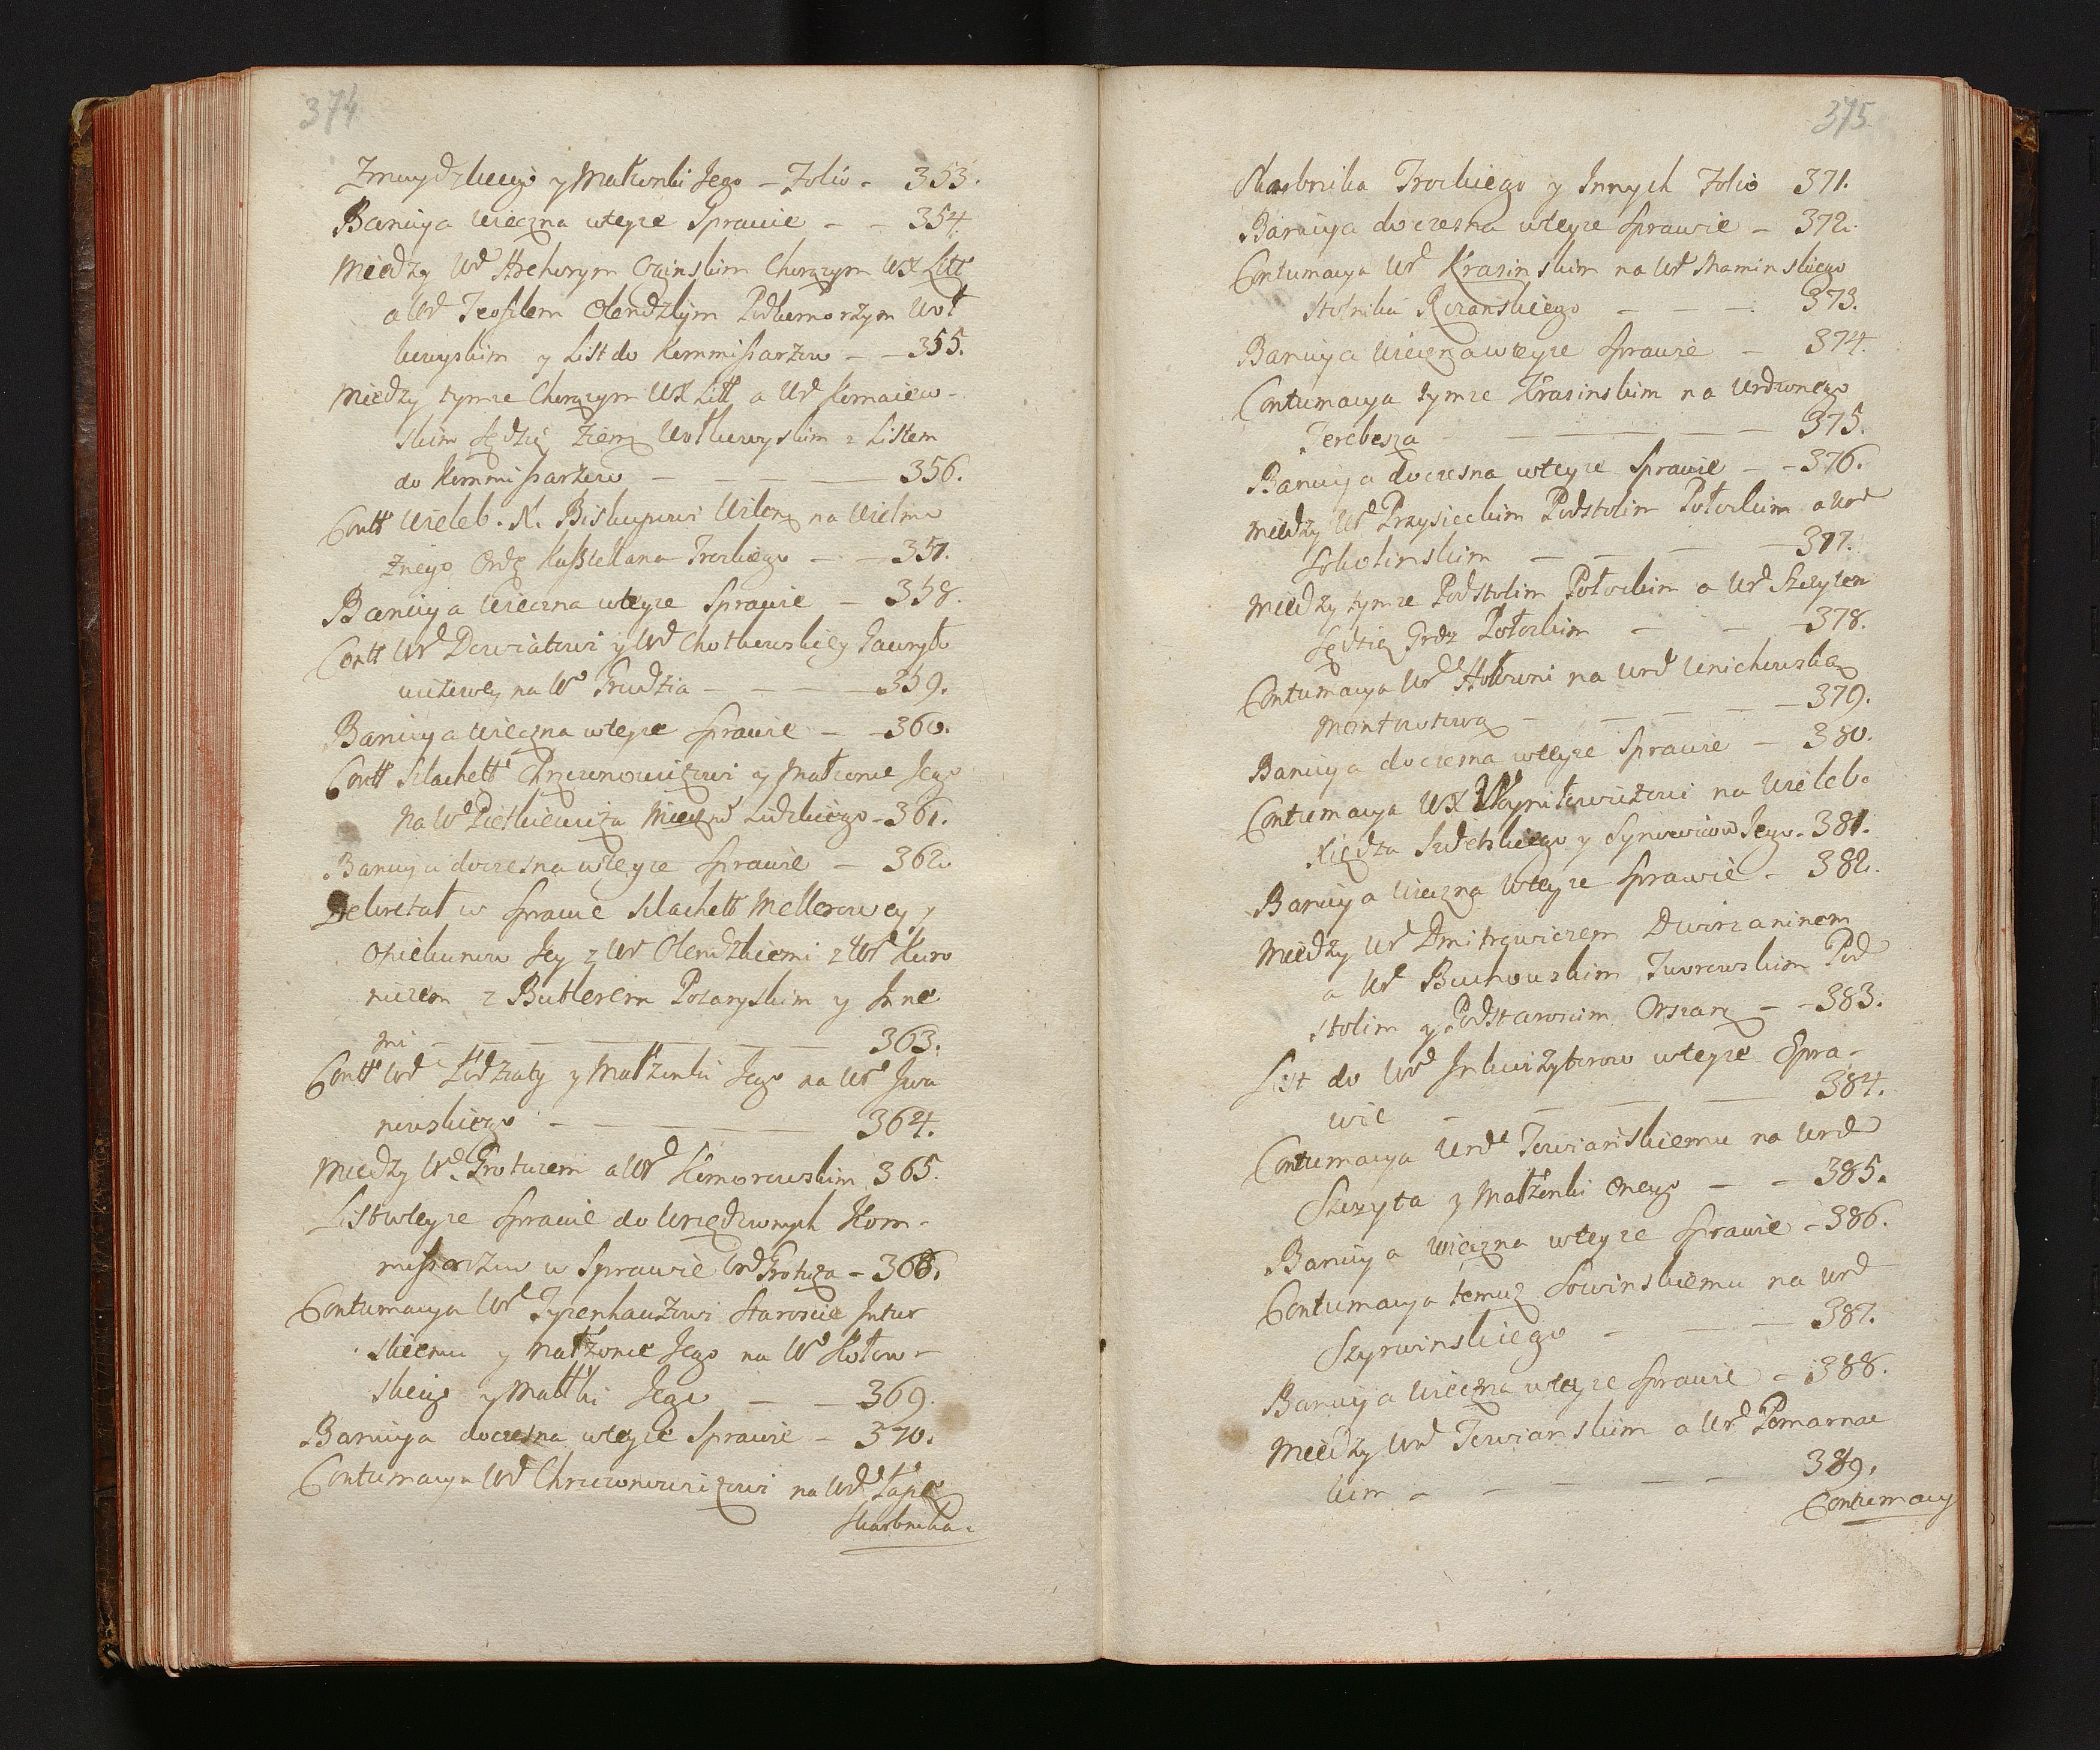 374
Zmuydzkiego y Małżonki Jego – Folio – 353.
Banicya wieczna wteyże Sprawie – – 354.
Między Ur Hrehorym Oginskim Chorążym WX Litt
a Ur Teofilem Olendzkim Podkomorzym Woł
kowyskim y List do Kommissarzow – – 355.
Między tymże Chorążym WX Litt a Ur Komaiew-
skim Sędzią Ziem Wołkowyskim z Listem
do Kommissarzow – – – 356.
Contt Wieleb. X. Biskupowi Wilen na Wielmo
żnego Ordę Kasztelana Trockiego – – 357.
Banicya wieczna wteyże Sprawie – 358.
Contt Ur Dowiatowi y Ur Chotkowskiey Gawryło
wiczowey na Ur Grudzia – – – 359.
Banicya wieczna wteyże Sprawie – – 360.
Contt Szlachett Chrzczonowiczowi y Małżonce Jego
na Ur Pietkiewicza Mieczn Lidzkiego – 361.
Banicya doczesna wteyże Sprawie – 362
Dekretał w Sprawie Szlachett Mellerowey y
Opiekunow Jey z Ur Olendzkiemi z Ur Kuro
niczem z Butlerem Pozaryskim y Inne
mi – – – – 363.
Contt Ur Łodziaty y Małżonki Jego na Ur Iwa
nowskiego – – – 364.
Między Ur Grotuzem a Ur Komorowskim 365.
List wteyże Sprawie do Urzędzonych Kom-
missarzow w Sprawie Ur Grotuza – 366.
Contumacya Ur Tyzenhauzowi Staroscie Intur
skiemu y Małżonce Jego na Ur Kotow-
skiego y Mattki Jego – – 369.
Banicya doczesna wteyże Sprawie – 370.
Contumacya Ur Chrzczonowiczowi na Ur Łapę
Skarbnika.
375
Skarbnika Trockiego y Innych Folio 371.
Banicya doczesna wteyże Sprawie – 372.
Contumacya Ur Krasinskim na Ur Kaminskiego
Stolnika Rozanskiego – – – 373.
Banicya wieczna wteyże Sprawie – 374.
Contumacya tymże Krasinskim na Urodzonego
Terebesza – – – – 375.
Banicya doczesna wteyże Sprawie – – 376.
Między Ur Przysieckim Podstolim Połockim a Ur
Sokolinskim – – – – 377.
Między tymże Podstolim Połockim a Ur Szczytem
Sędzią Grdz Połockim – – – 378.
Contumacya Ur Hołowni na Ur Unichowską
Montowtową – – – – 379.
Banicya doczesna wteyże Sprawie – 380.
Contumacya WX Woyniłowiczowi na Wieleb.
Xiędza Sudelskiego y Synowcow Jego – 381.
Banicya wieczna wteyże Sprawie – 382.
Między Ur Dmitrowiczem Dwirzaninem
a Ur Buchowskim Jworowskim Pod
stolim y Podstaroscim Orszan – – 383.
List do Ur Inkwizytorow wteyże Spra-
wie – – – – 384.
Contumacya Urd Towianskiemu na Urd
Szczyta y Małżonki Onego – – 385.
Banicya wieczna wteyże Sprawie – 386.
Contumacya temuż Sowinskiemu na Urd
Szyrwinskiego – – – 387.
Banicya wieczna wteyże Sprawie – 388.
Między Urd Towianskim a Ur Pomarnac
kim – – – – – 389.
Contumacy